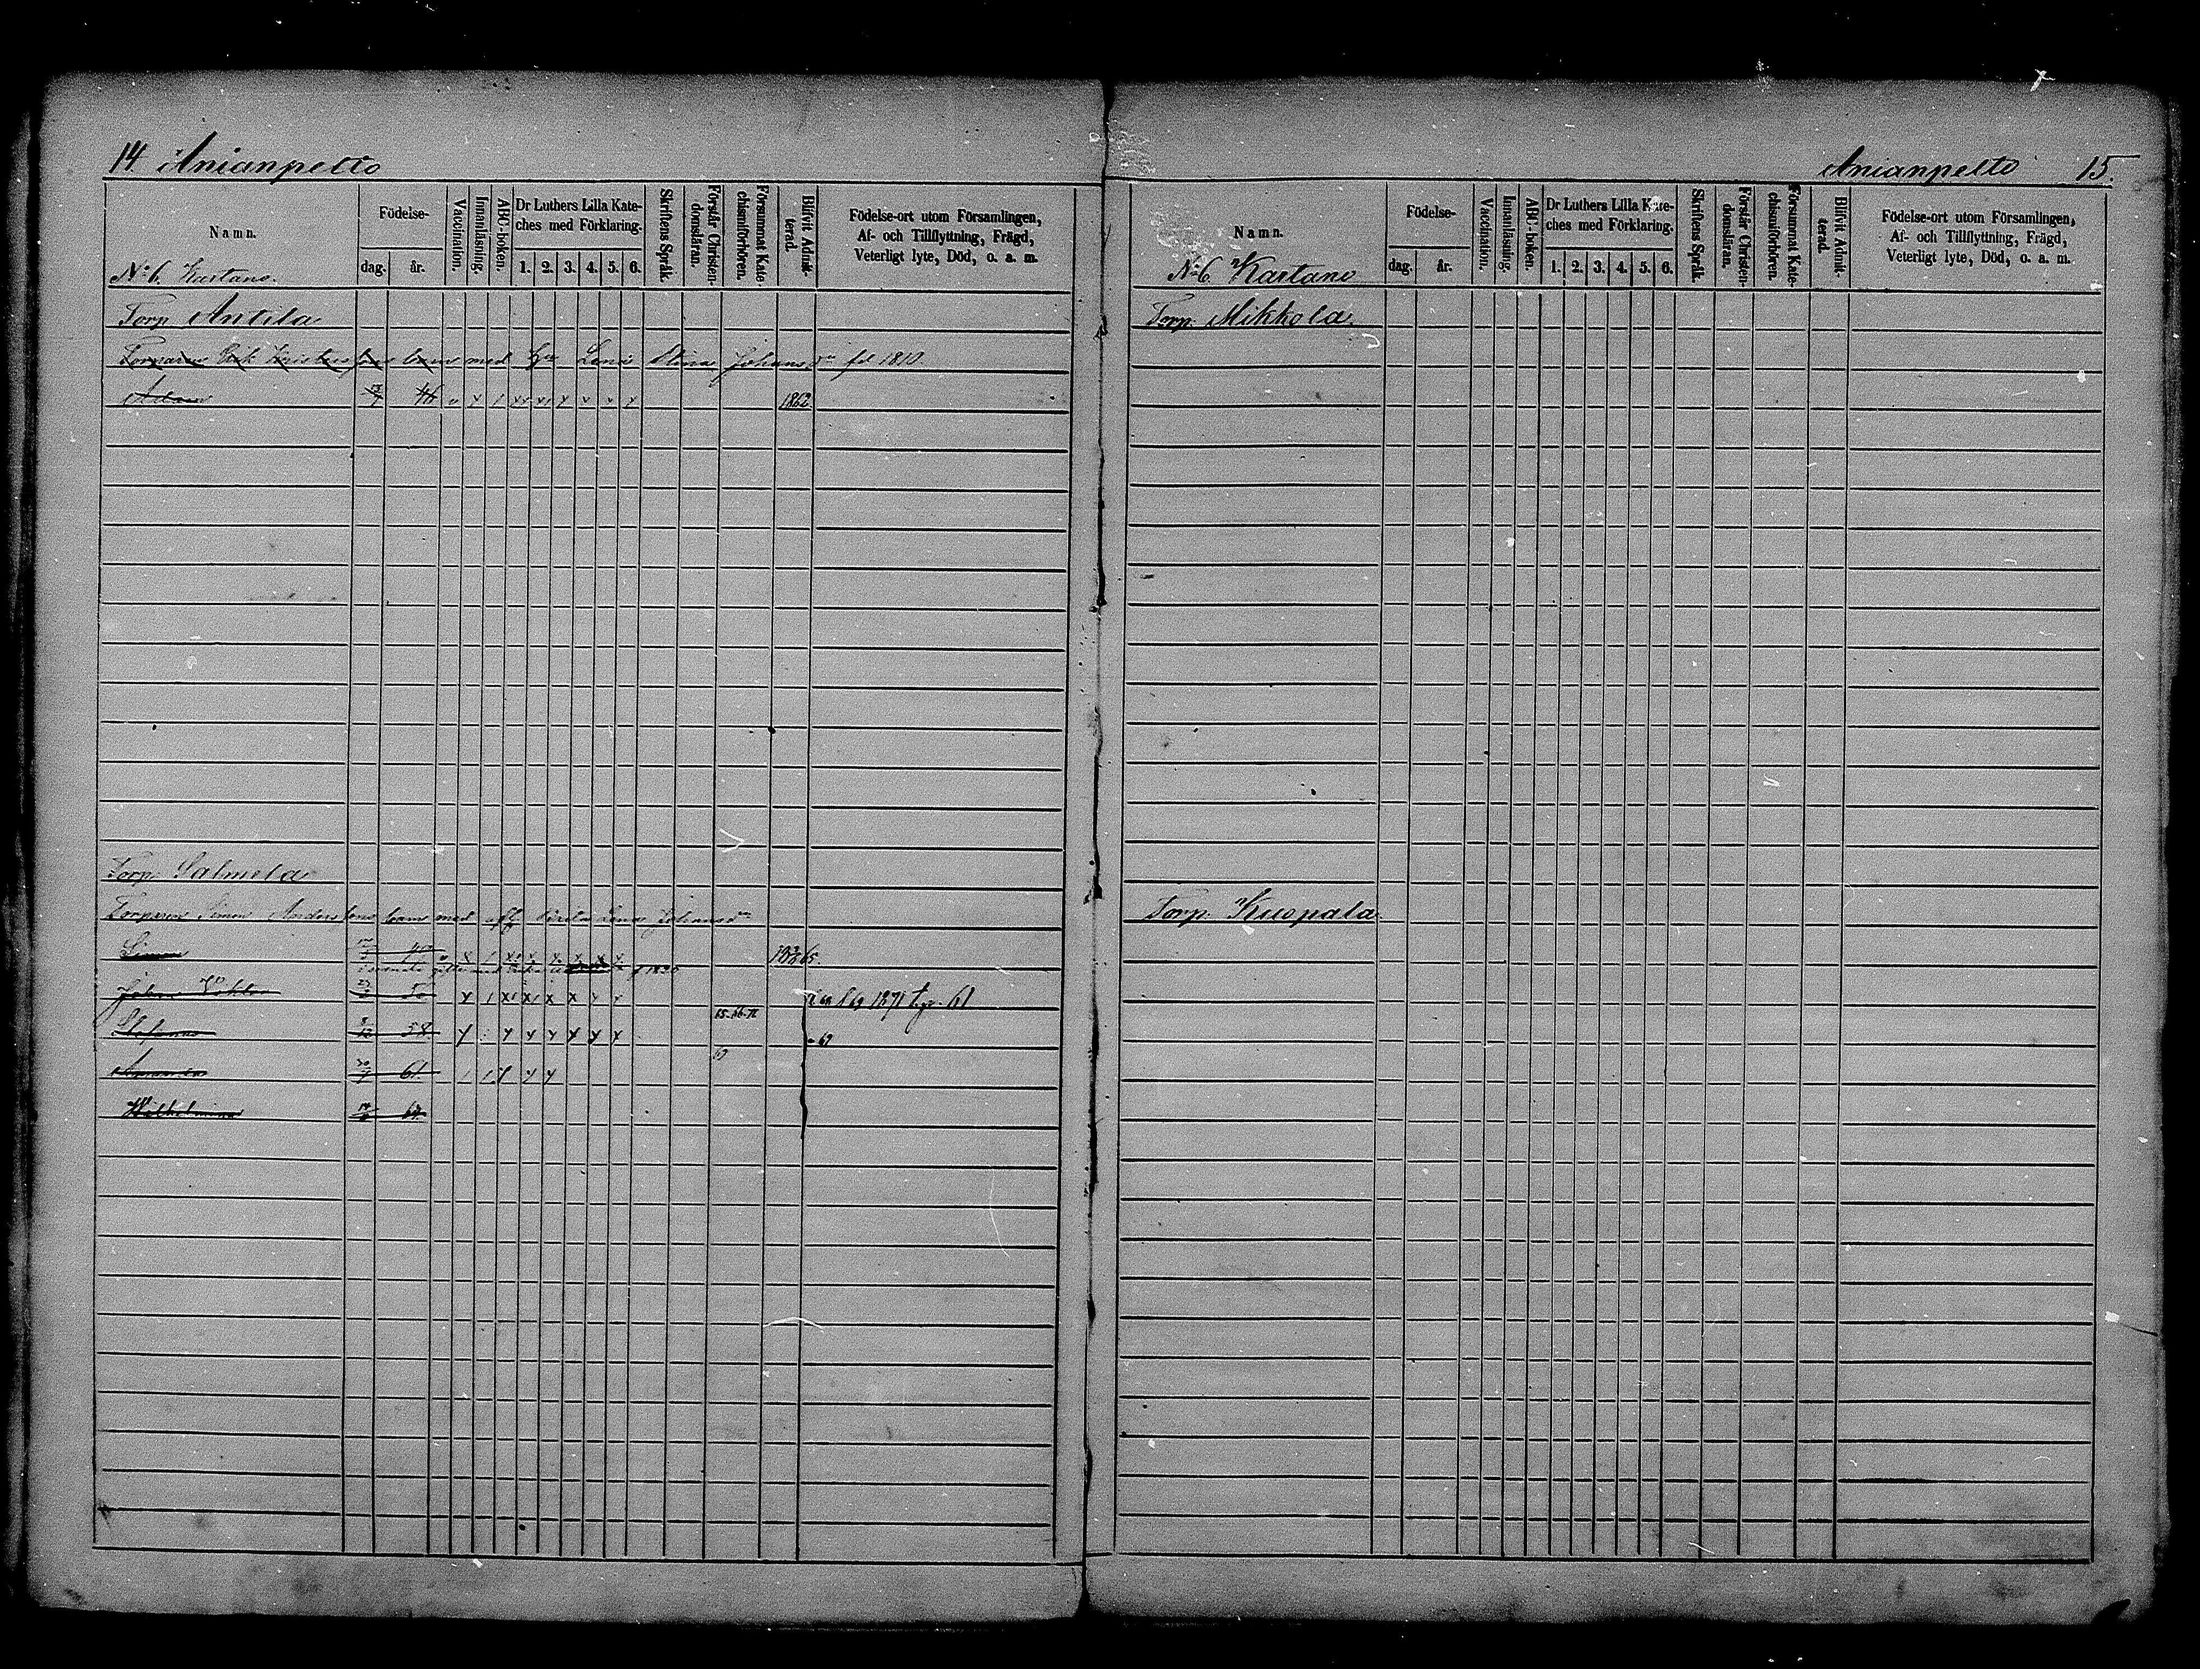 14. Anianpelto
Namn.
Födelse-
dag. år.
Vaccination.
Innanläsning.
ABC-boken.
Dr Luthers Lilla Kate-
ches med Förklaring.
1. 2. 3. 4. 5. 6.
Skriftens Språk.
Förstår Christen-
domsläran.
Försummat Kate-
chismiförhören.
Blifvit Admit-
terad.
Födelse-ort utom Församlingen,
Af- och Tillflyttning, Frägd,
Veterligt lyte, Död, o. a. m.
No 6. Kartano.
Torp Antila
Torparen Erik barn med Lena Stina Johansdr fd 1810
Adam 46 1862
Torp. Salmela
Torparen Simon Anderssons barn med Lena Johansdr
Simon 65.
Johan 50 1871 61
65. 66. 71
Stefanus 58 69
69
Amanda 61.
Wilhelmina
Anianpelto 15.
Namn.
Födelse-
dag. år.
Vaccination.
Innanläsning.
ABC-boken.
Dr Luthers Lilla Kate-
ches med Förklaring.
1. 2. 3. 4. 5. 6.
Skriftens Språk.
Förstår Christen-
domsläran.
Försummat Kate-
chismiförhören.
Blifvit Admit-
terad.
Födelse-ort utom Församlingen,
Af- och Tillflyttning, Frägd,
Veterligt lyte, Död, o. a. m.
No 6. Kartano
Torp. Mikkola.
Torp. Kuopala